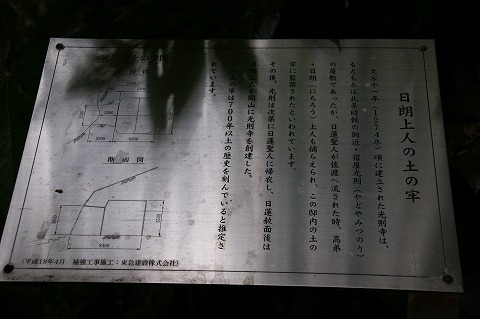 日朗上人の土の牢
文永十一年(1274年)頃に建立された光則寺は、
もともとは北条時頼の側近・宿屋光則(やどやみつのり)
の屋敷であったが、日蓮聖人が佐渡へ流された時、高弟
・日朗(にちろう)上人も捕らえられ、この邸内の土の
牢に監禁されたといわれています。
その後、光則は次第に日蓮聖人に帰衣し、日蓮赦面後は
を開山に光則寺を創建した。
の牢は700年以上の歴史を刻んでいると推定さ
れています。
断面図
(平成18年4月 補強工事施工:東急建設株式会社)